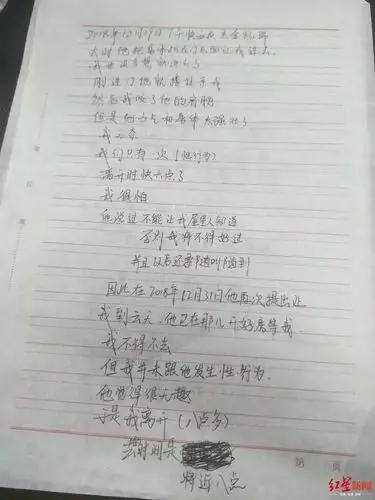 2018年10月19日下午快
去时他把
我
刚进门他就搂住了我
然后我咬了他的肩膀
但是他力气和身体太强壮了
我
我们只有一次（性行为）
离开时快六点了
我很怕
他说过不能让我屋里人知道
否则我将不得好过
并且以后还要随叫随到
因此在2018年12月31日他再次提出
我到云天，他已在那儿开好房等我
我不得不去
但我并未跟他发生性行为
他觉得很无趣
于是我离开（八点多）
当时间是
将近八点
第 页
红星新闻